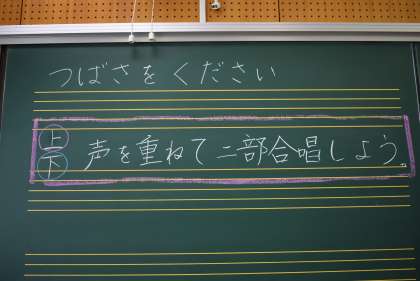 つばさをください
上 声を重ねて二部合唱しよう。
下